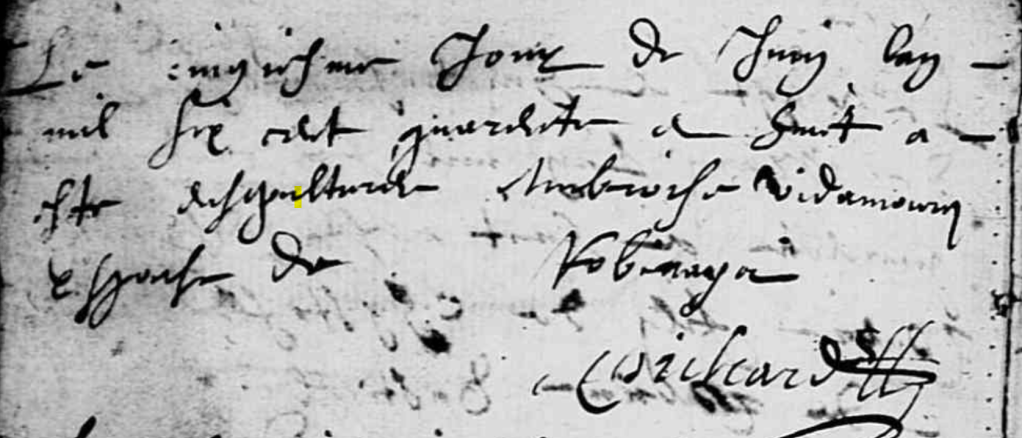 Le cinquiesme Jour de Juin lan
mil six cent quarente et huit a
este ensepulturée Ambroise Vidamour
espouse de Robinaya
Richard